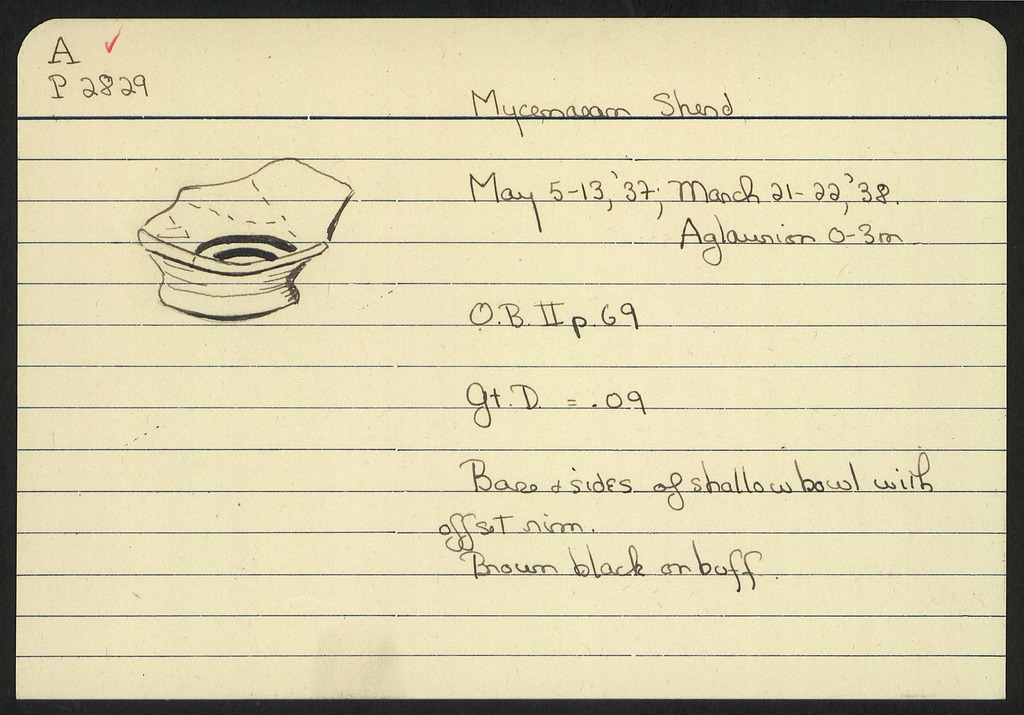 A ✓
P 2829
Mycenaean Sherd
May 5-13, '37; March 21-22, '38.
Aglaurion 0-3m
O.B. II p. 69
Gt. D. = .09
Base & sides of shallow bowl with
offset rim.
Brown black on buff.